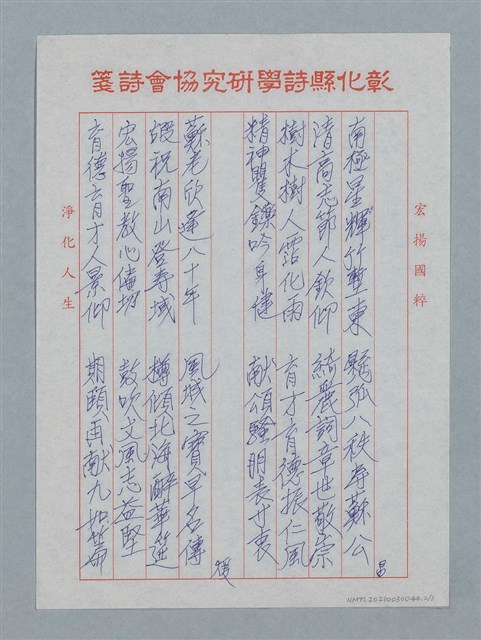 彰化縣詩學研究協會詩箋
宏揚國粹
南極星輝竹塹東 懸弧八秩壽蘇公
清高志節人欽仰 綺麗詞章世敬崇
樹木樹人霑化雨 育才育德振仁風
精神矍鑠吟身健 献頌騷朋表寸衷
蘇老欣逢八十年 風城之寶早名傳
嘏祝南山登壽域 樽傾北海醉華筵
宏揚聖教心倫切 鼓吹文風志益堅
育德育才人景仰 期頤再献九如篇
淨化人生
NMTL20210030044.2/3